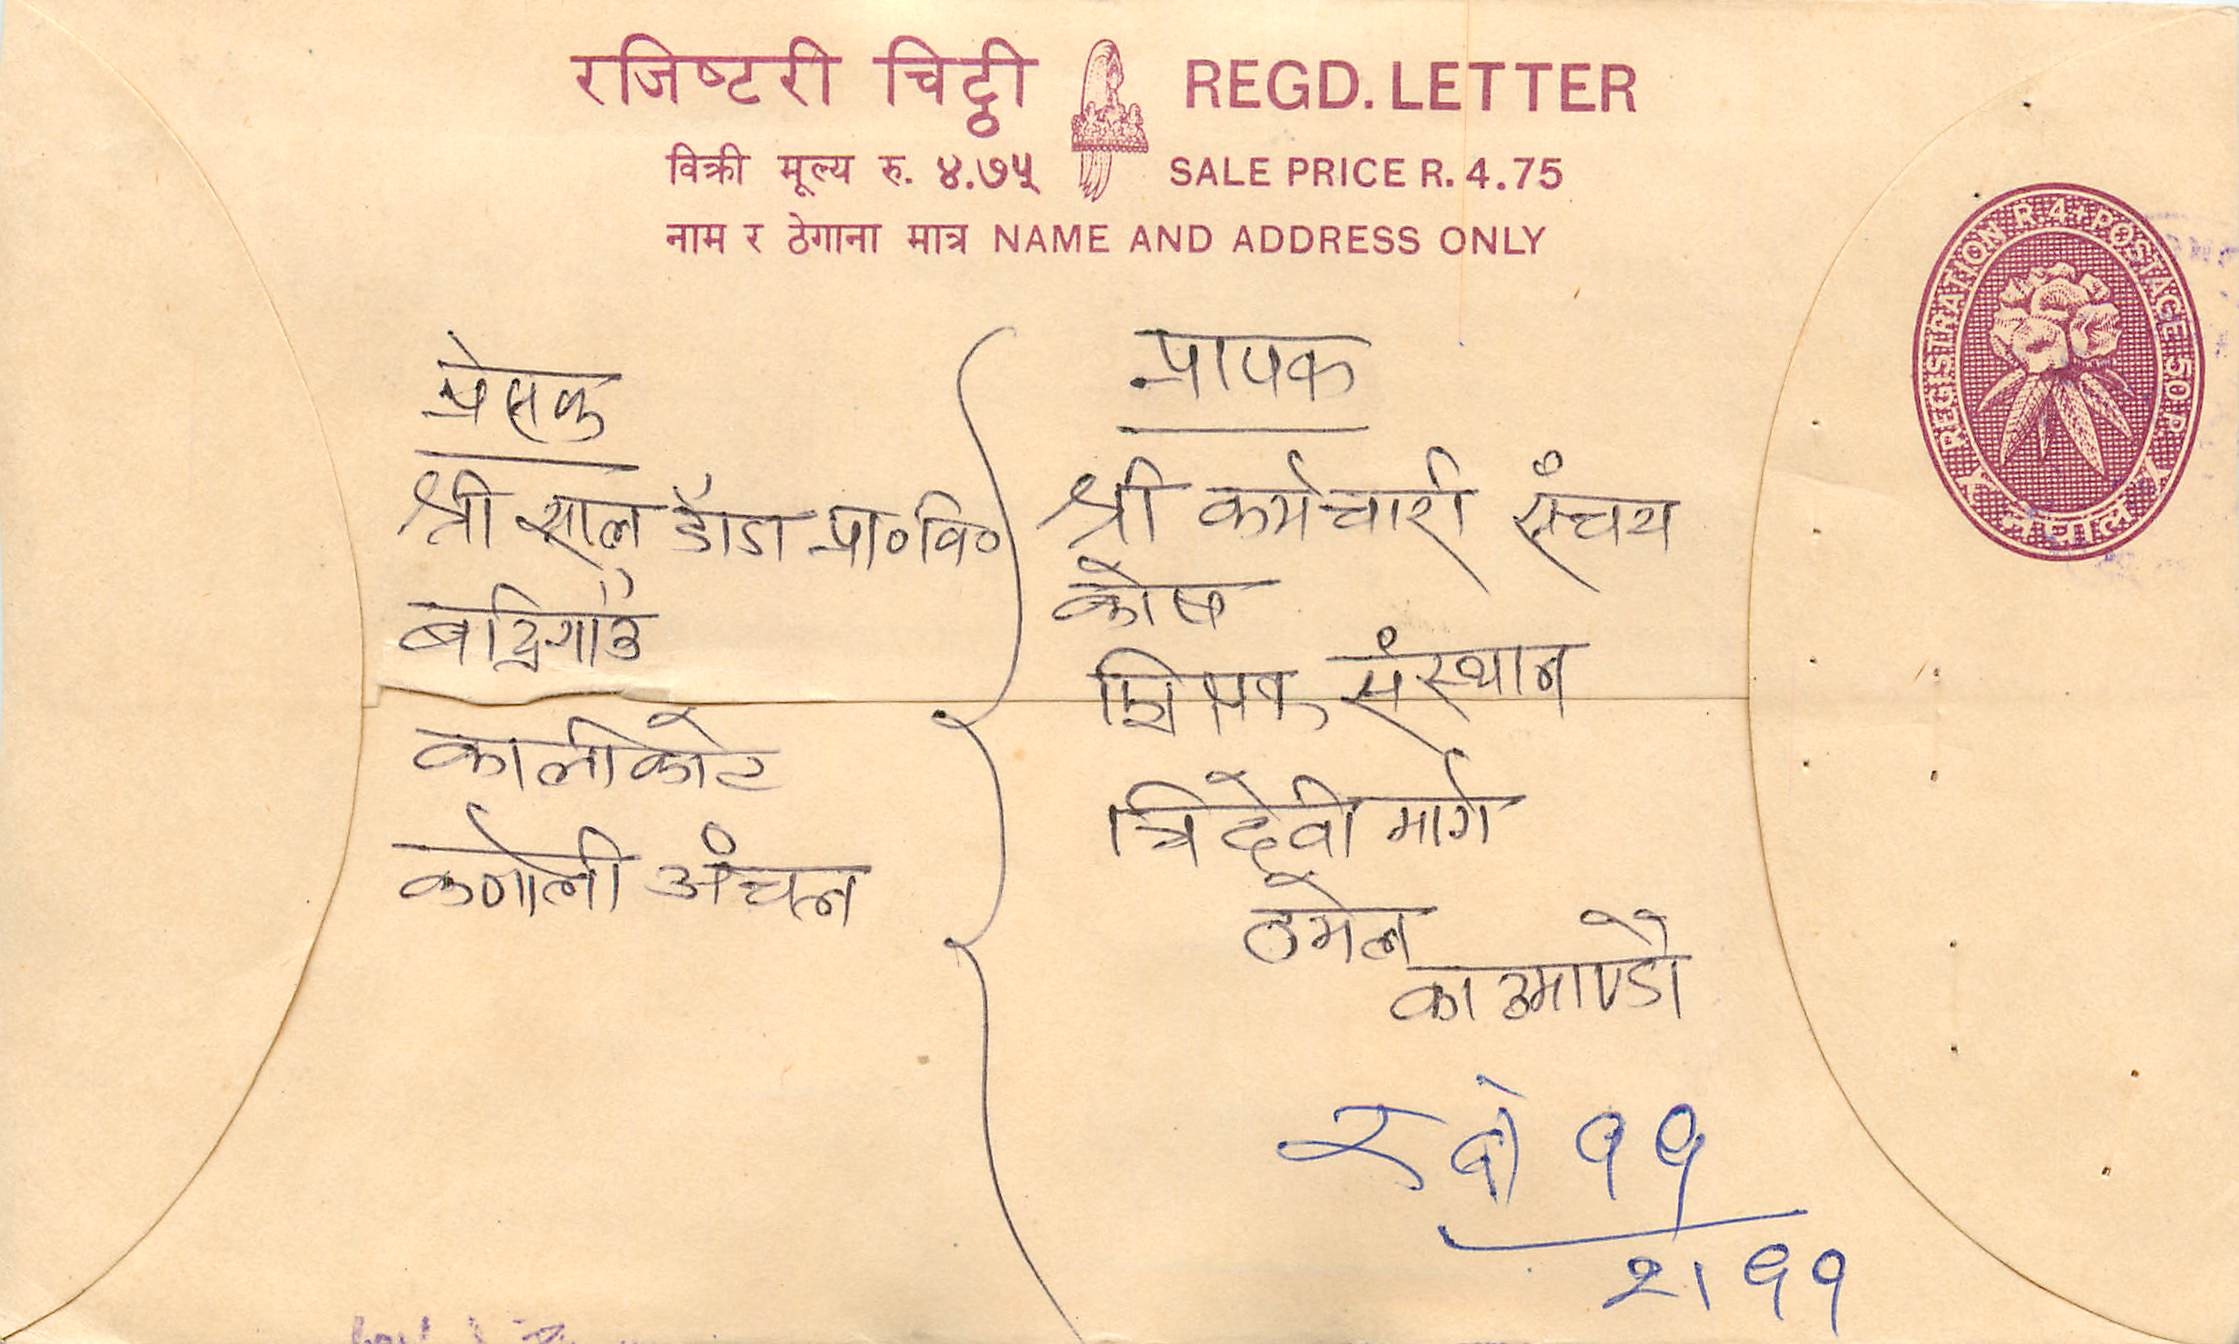 रजिष्टरी चिट्ठी REGD. LETTER
विक्री मूल्य रु. ४.७५ SALE PRICE R. 4.75
नाम र ठेगाना मात्र NAME AND ADDRESS ONLY
REGISTRATION R. 4 + POSTAGE 50 P.
नेपाल
प्रेषक
श्री साल डाँडा प्रा०वि०
बद्रिगाउँ
कालीकोट
कर्णाली अंचल
प्रापक
श्री कर्मचारी संचय
कोष
संस्थान
त्रिदेवी मार्ग
ठमेल
काठमाण्डौ
११
२।११